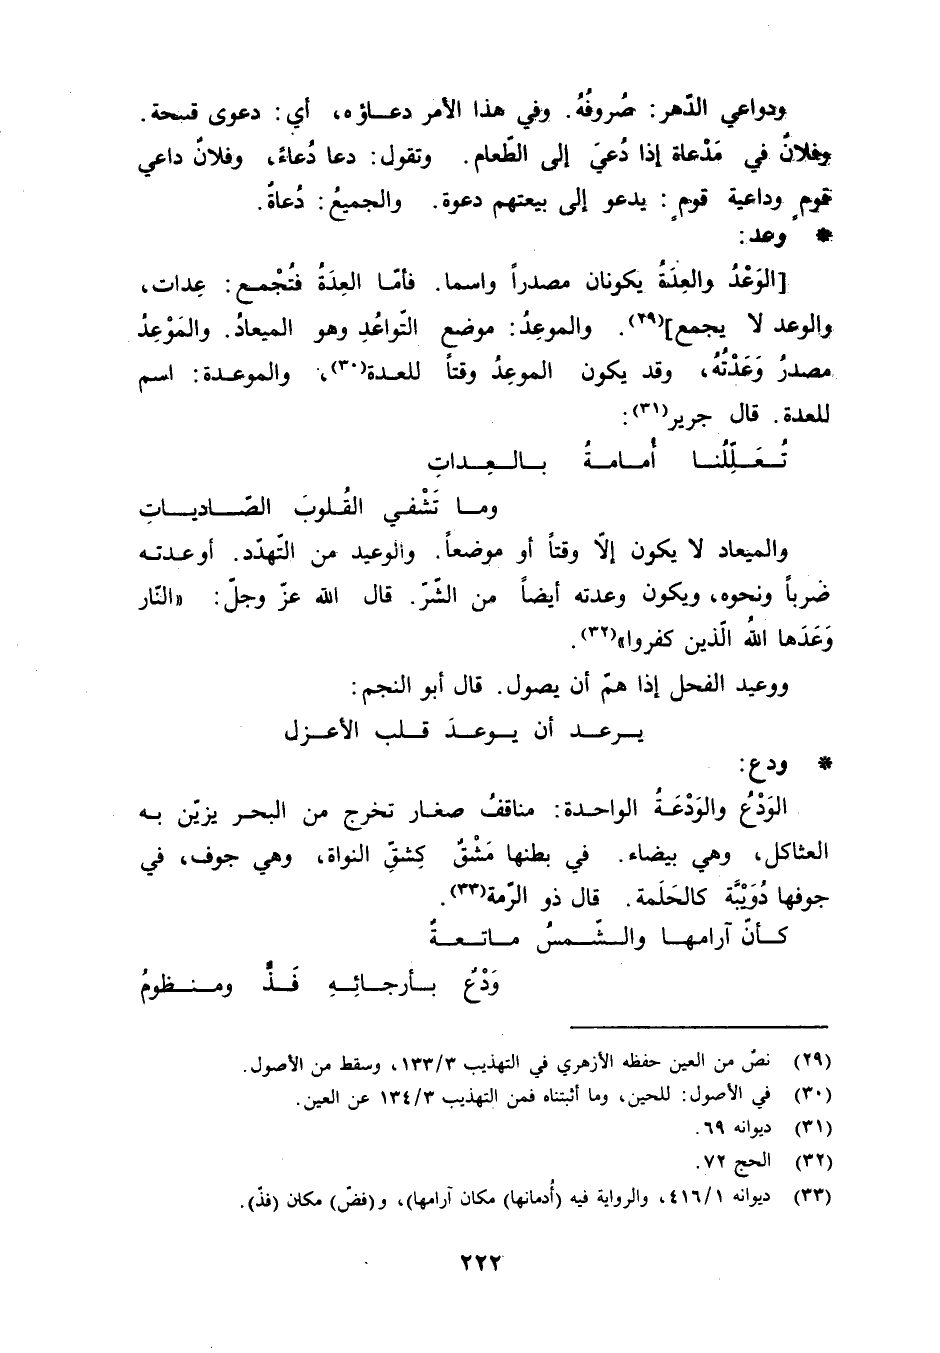 ودواعي الدّهر: صُروفُهُ. وفي هذا الأمر دعاؤه، أي: دعوى قسحة.
وفلانٌ في مَدْعاة إذا دُعيَ إلى الطّعام. وتقول: دعا دُعاءً، وفلانٌ داعي
قومٍ وداعية قومٍ: يدعو إلى بيعتهم دعوة. والجميعُ: دُعاةٌ.
* وعد:
[الوَعْدُ والعِدَةُ يكونان مصدراً واسما. فأمّا العِدَةُ فتُجْمع: عِدات،
والوعد لا يجمع](٢٩). والموعِدُ: موضع التّواعُدِ وهو الميعادُ. والمَوْعِدُ
مصدرُ وَعَدْتُهُ، وقد يكون الموعِدُ وقتاً للعدة(٣٠)، والموعدة: اسم
للعدة. قال جرير(٣١):
تُعَلِّلُنا أُمامةُ بالعِداتِ
وما تَشْفي القُلوبَ الصّادياتِ
والميعاد لا يكون إلّا وقتاً أو موضعاً. والوعيد من التّهدّد. أوعدته
ضرباً ونحوه، ويكون وعدته أيضاً من الشّرّ. قال الله عزّ وجلّ: «النّار
وَعَدَها اللهُ الّذين كفروا»(٣٢).
ووعيد الفحل إذا همّ أن يصول. قال أبو النجم:
يرعد أن يوعدَ قلب الأعزل
* ودع:
الوَدْعُ والوَدْعَةُ الواحدة: مناقفُ صغار تخرج من البحر يزيّن به
العثاكل، وهي بيضاء. في بطنها مَشْقٌ كِشقِّ النواة، وهي جوف، في
جوفها دُوَيْبَّة كالحَلَمة. قال ذو الرّمة(٣٣).
كأنّ آرامها والشّمسُ ماتعةٌ
وَدْعٌ بأرجائِهِ فَذٌّ ومنظومُ
(٢٩) نصّ من العين حفظه الأزهري في التهذيب ١٣٣/٣، وسقط من الأصول.
(٣٠) في الأصول: للحين، وما أثبتناه فمن التهذيب ١٣٤/٣ عن العين.
(٣١) ديوانه ٦٩.
(٣٢) الحج ٧٢.
(٣٣) ديوانه ٤١٦/١، والرواية فيه (أُدمانها) مكان آرامها)، و(فضّ) مكان (فذّ).
٢٢٢